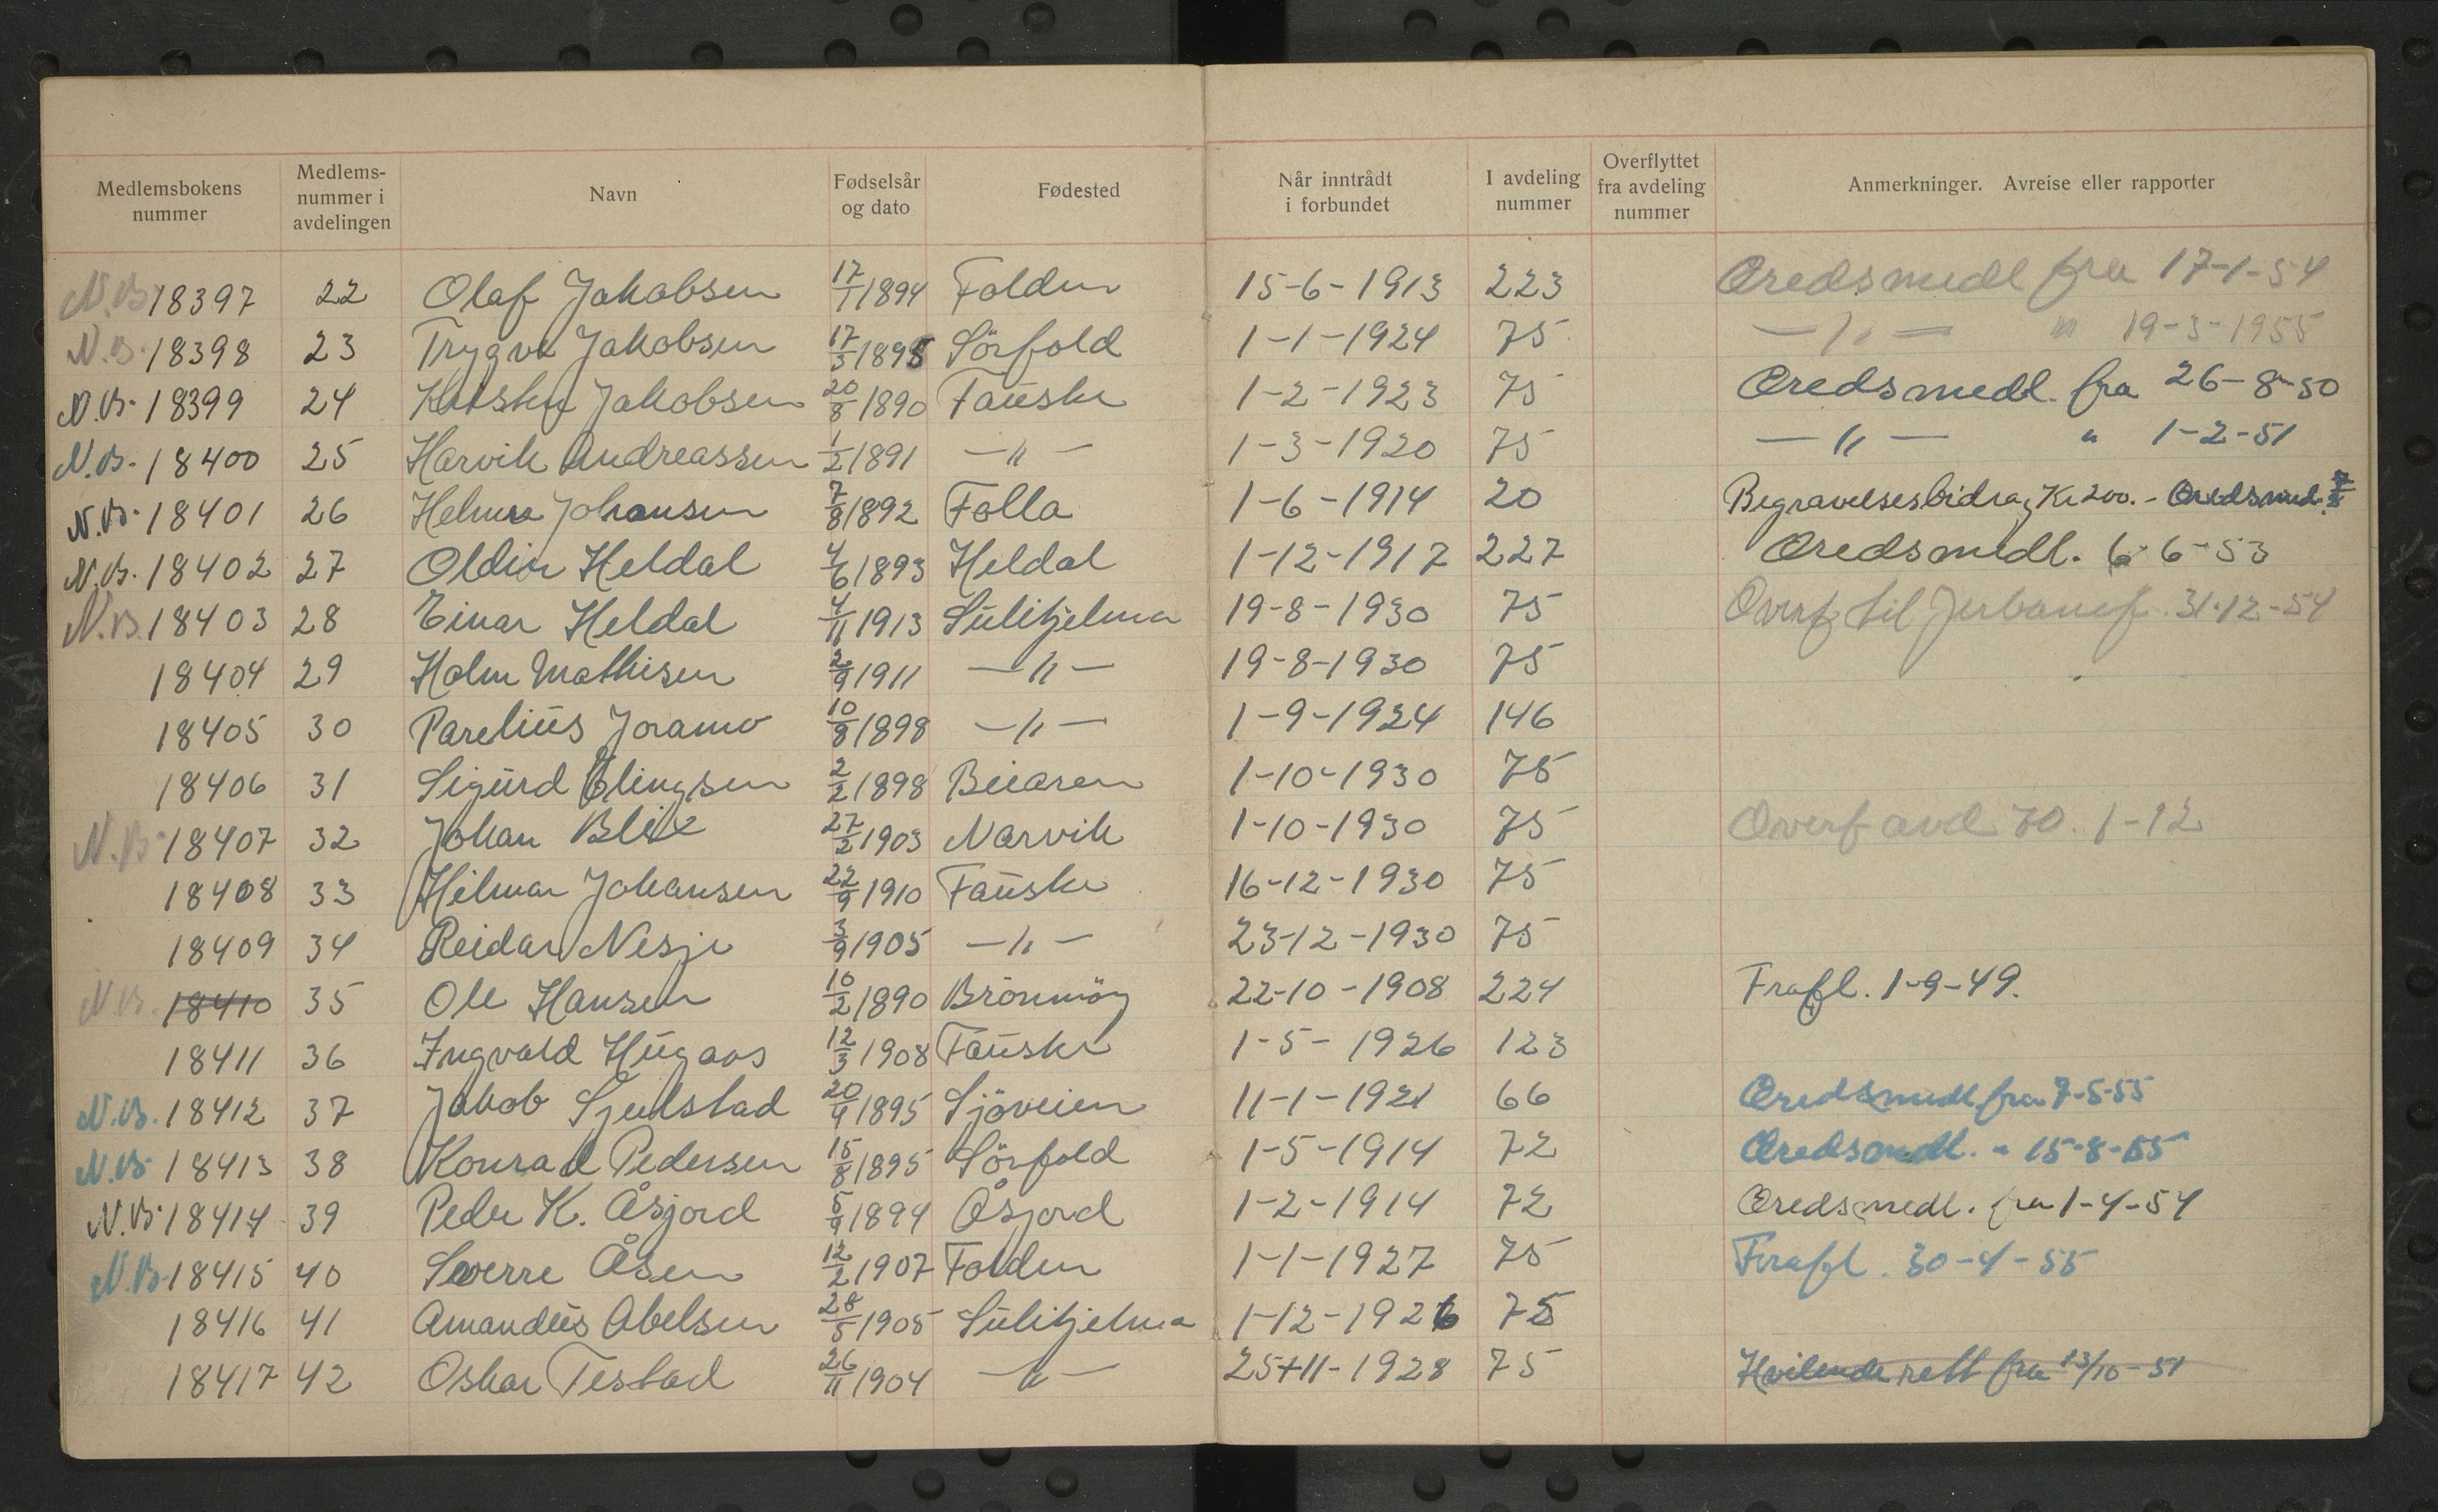 Medlemsbokens nummer | Medlems-nummer i avdelingen | Navn | Fødselsår og dato | Fødested | Når inntrådt i forbundet | I avdeling nummer | Overflyttet fra avdeling nummer | Anmerkninger. Avreise eller rapporter
N.B. 18397 22 Olaf Jakobsen 17/1 1894 Folden 15-6-1913 223 Æredsmedl fra 17-1-54
N.B. 18398 23 Trygve Jakobsen 17/3 1895 Sörfold 1-1-1924 75 —〃— 〃 19-3-1955
N.B. 18399 24 Jakobsen 20/8 1890 Fauske 1-2-1923 75 Æredsmedl. fra 26-8-50
N.B. 18400 25 Harvik Andreassen 1/2 1891 —〃— 1-3-1920 75 —〃— 〃 1-2-51
N.B. 18401 26 Johansen 7/8 1892 Folla 1-6-1914 20 Begravelsesbidrag Kr 200.- Æredsmed. 7/8
N.B. 18402 27 Oldin Heldal 4/6 1893 Heldal 1-12-1917 227 Æredsmedl. 6-6-53
N.B. 18403 28 Einar Heldal 4/11 1913 Sulitjelma 19-8-1930 75 Overf til 31-12-54
18404 29 Holm Mathisen 2/9 1911 —〃— 19-8-1930 75
18405 30 Parelius Joramo 10/8 1898 —〃— 1-9-1924 146
18406 31 Sigurd Elingsen 2/2 1898 Beiaren 1-10-1930 75
N.B. 18407 32 Johan Blix 27/2 1903 Narvik 1-10-1930 75 Overf avd 70. 1-12
18408 33 Hilmar Johansen 22/9 1910 Fauske 16-12-1930 75
18409 34 Reidar Nesje 3/9 1905 —〃— 23-12-1930 75
N.B. 18410 35 Ole Hansen 10/2 1890 Brönnöy 22-10-1908 224 Frafl. 1-9-49.
18411 36 Ingvald Hugaas 12/3 1908 Fauske 1-5-1926 123
N.B. 18412 37 Jakob Sjeldstad 20/4 1895 Sjöveien 11-1-1921 66 Æredsmedl fra 7-5-55
N.B. 18413 38 Konrad Pedersen 15/8 1895 Sörfold 1-5-1914 72 Æredsmedl. - 15-8-55
N.B. 18414 39 Peder K. Åsjord 5/9 1894 Åsjord 1-2-1914 72 Æredsmedl. fra 1-4-54
N.B. 18415 40 Sverre Åsen 12/2 1907 Folden 1-1-1927 75 Frafl. 30-4-55
18416 41 Amandus Abelsen 28/5 1905 Sulitjelma 1-12-1926 75
18417 42 Oskar Testad 26/11 1904 —〃— 25-11-1928 75 Hvilende rett fra 13/10-51